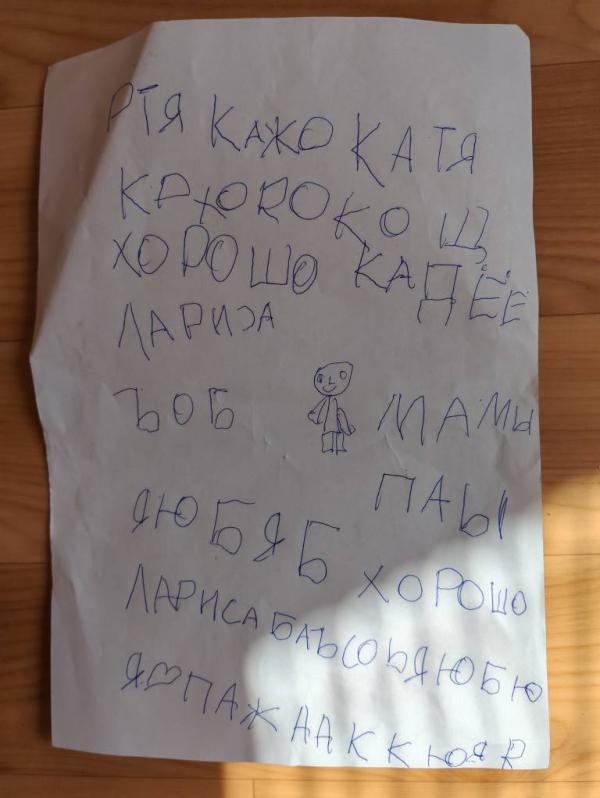 РТЯ КАЖО КАТЯ
КАХОЯОКО Щ
ХОРОШО КАДЁЁ
ЛАРИЗА
ЪОБ МАМЫ
ПАЫ
ЯЮБЯБ
ХОРОШО
ЛАРИСАБАЪСОЬЯЮБЮ
Я♡ПАЖААККЮЯR